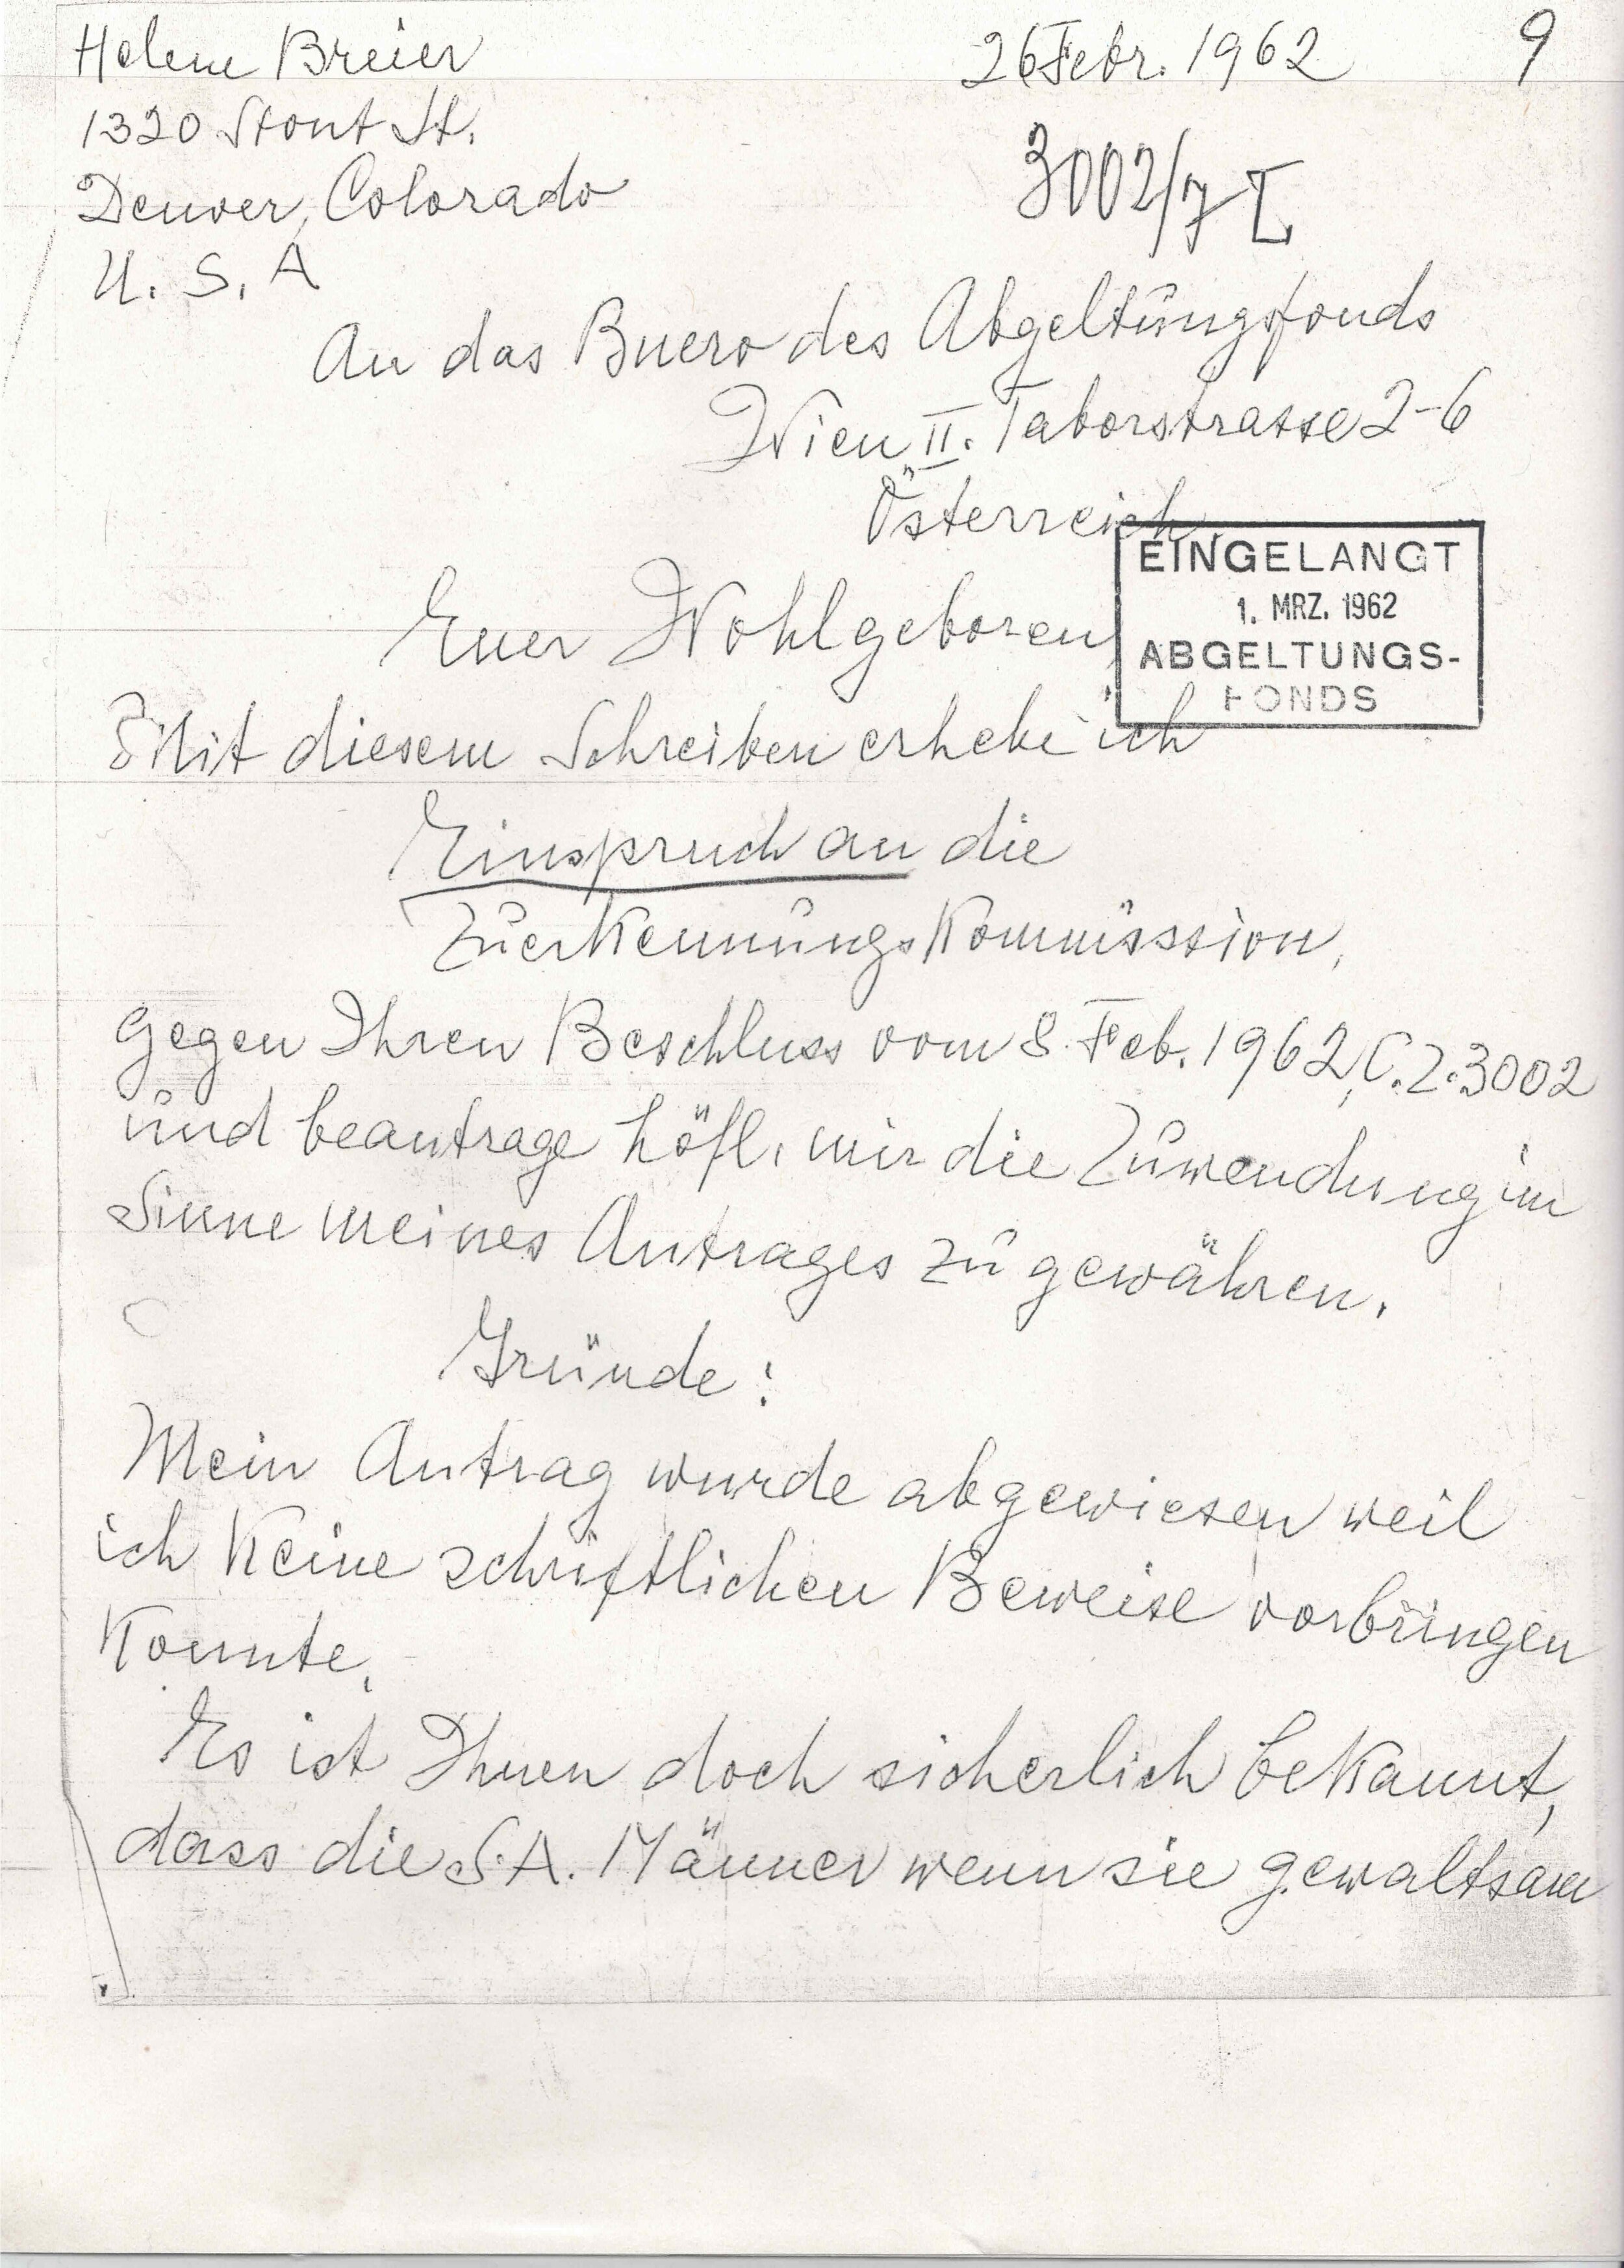 Helene Breier
26 Febr. 1962
9
1320 Stout St.
3002/7 I
Denver, Colorado
U. S. A
An das Buero des Abgeltungsfonds
Wien II. Taborstrasse 2-6
Österreich
EINGELANGT
1. MRZ. 1962
ABGELTUNGS-
FONDS
Euer Wohlgeboren
Mit diesem Schreiben erhebe ich
Einspruch an die
Zuerkennungskommission,
gegen Ihren Beschluss vom 8. Feb. 1962, C.Z. 3002
und beantrage höfl. mir die Zuwendung im
Sinne meines Antrages zu gewähren.
Gründe:
Mein Antrag wurde abgewiesen weil
ich keine schriftlichen Beweise vorbringen
konnte.
Es ist Ihnen doch sicherlich bekannt,
dass die S.A. Männer wenn sie gewaltsam